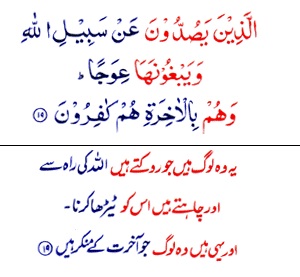 الَّذِيْنَ يَصُدُّوْنَ عَنْ سَبِيْلِ اللّٰهِ
وَيَبْغُوْنَهَا عِوَجًا ؕ
وَهُمْ بِالْاٰخِرَةِ هُمْ كٰفِرُوْنَ ﴿۱۹﴾
یہ وہ لوگ ہیں جو روکتے ہیں اللہ کی راہ سے
اور چاہتے ہیں اس کو ٹیڑھا کرنا۔
اور یہی ہیں وہ لوگ جو آخرت کے منکر ہیں ﴿۱۹﴾